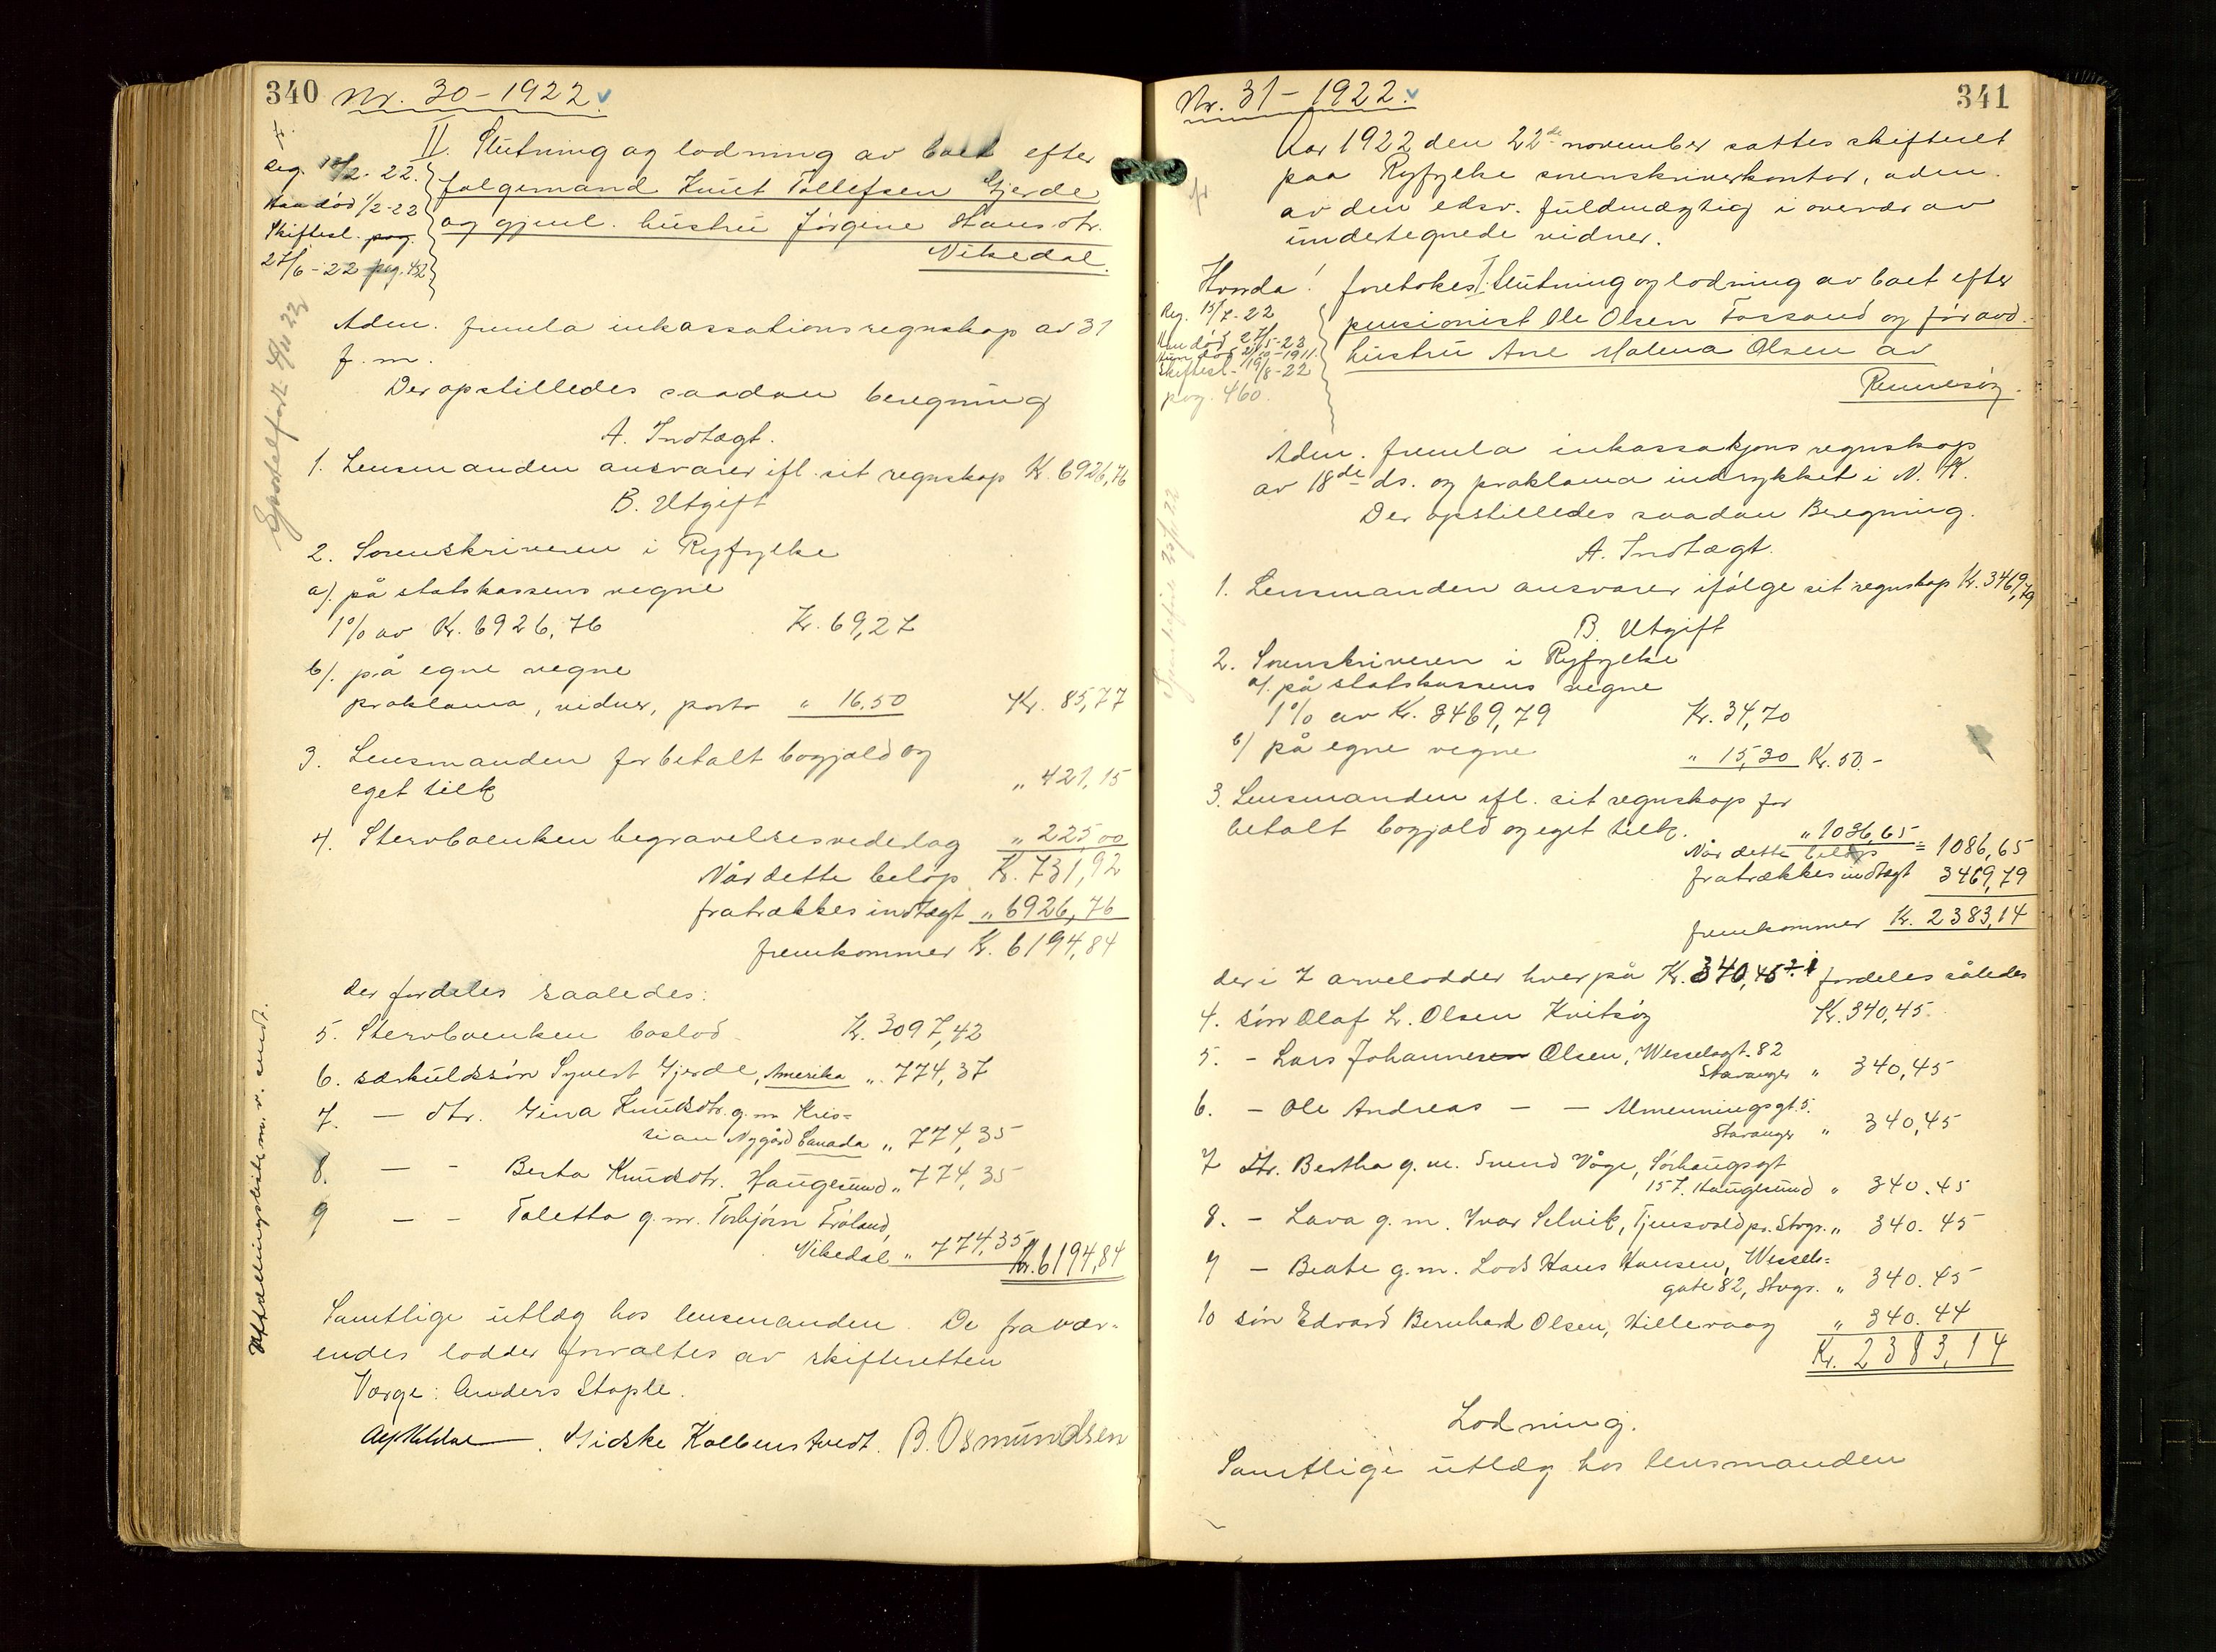 340
Nr. 30 - 1922.
II. Slutning og lodning av boet efter
folgemand Knut Tollefsen Gjerde
og gjenl. hustru Jörgine Hansdtr.
Vikedal.
Reg. 10/2-22.
Han död 1/2-22
Skiftesl. pag.
27/6-22 pag. 452
Adm. fremla inkassationsregnskap av 31
f. m.
Der opstilledes saadan beregning
A. Indtægt.
1. Lensmanden ansvarer ifl. sit regnskap Kr. 6926,76
B. Utgift
2. Sorenskriveren i Ryfylke
a/. på statskassens vegne
1% av Kr. 6926,76 Kr. 69,27
b/. på egne vegne
proklama, vidner, porto " 16.50 Kr. 85,77
3. Lensmanden for betalt bogjæld og
eget tilk " 421,15
4. Stervboenken begravelsesvederlag " 225,00
Når dette belöp Kr. 731,92
fratrækkes indtægt " 6926,76
fremkommer Kr. 6194,84
der fordeles saaledes:
5. Stervboenken boslod Kr. 3097,42
6. særkuldsön Syvert Gjerde, Amerika " 774,37
7. — dtr. Gina Knudsdtr. g. m. Kris=
tian Nygård Canada " 774,35
8. — - Berta Knudsdtr. Haugesund " 774,35
9 — - Taletta g. m. Torbjörn Tröland,
Vikedal " 774,35 Kr. 6194,84
Samtlige utlæg hos lensmanden. De fravær-
endes lodder forvaltes av skifteretten
Værge: Anders Stople.
Hidske Kolbenstvedt. B. Osmundsen
Utfærdningsliste m. v. sendt.
341
Nr. 31 - 1922.
Aar 1922 den 22de november sattes skifteret
paa Ryfylke sorenskriverkontor, adm.
av den edsv. fuldmægtig i overvær av
undertegnede vidner.
Hvorda! foretokes I. Slutning og lodning av boet efter
pensionist Ole Olsen Fossand og föravd.
hustru Ane Malena Olsen av
Rennesöy.
Reg. 15/7-22
Han död 27/5-22
Hun död 21/10-1911.
Skiftesl. 19/8-22
pag. 460.
Adm. fremla inkassakjonsregnskap
av 18de ds. og proklama indrykket i N. K.
Der opstilledes saadan Beregning.
A. Indtægt.
1. Lensmanden ansvarer ifölge sit regnskap Kr. 3469,79
B. Utgift
2. Sorenskriveren i Ryfylke
a/. på statskassens vegne
1% av Kr. 3469,79 Kr. 34,70
b/ på egne vegne " 15,30 Kr. 50.-
3. Lensmanden ifl. sit regnskap for
betalt bogjæld og eget tilk. " 1036,65
Når dette belöp = 1086,65
fratrækkes indtægt 3469,79
fremkommer Kr. 2383,14
der i 7 arvelodder hver på Kr. 340,45 fordeles således
4. sön Olaf L. Olsen Kvitsöy Kr. 340,45.
5. - Lars Johannesen Olsen, Wesselsgt. 82
Stavanger " 340,45
6. - Ole Andreas - - Almenningsgt. 5.
Stavanger " 340,45
7 dtr. Bertha g. m. Svend Våge, Sörhaugsgt
157. Haugesund " 340.45
8. - Lava g. m. Ivar Selvik, Tjensvold pr. Stvgr. " 340.45
9 - Beate g. m. Lods Hans Hansen, Wessels=
gate 82, Stvgr. " 340.45
10 sön Edvard Bernhard Olsen, Hillevaag " 340.44
Kr. 2383,14
Lodning.
Samtlige utlæg hos lensmanden